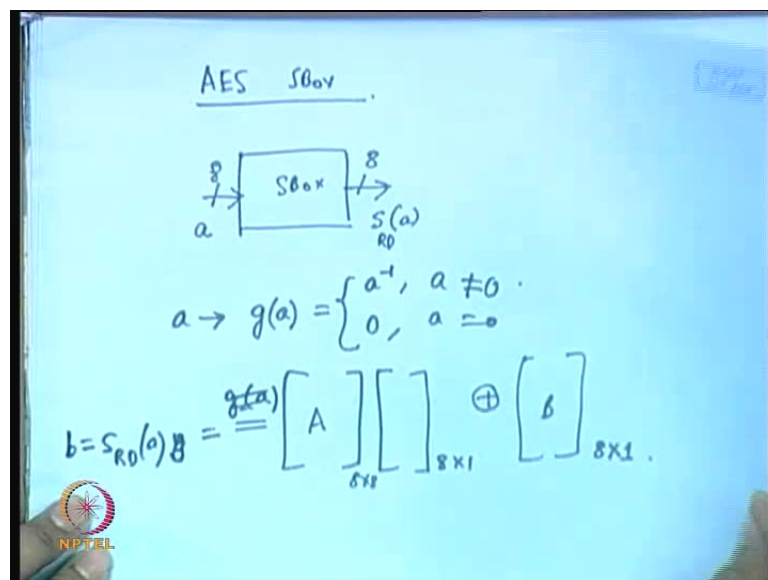 AES SBox
8 SBox 8
a S_RD(a)
a → g(a) = { a⁻¹, a ≠ 0 .
0, a = 0
b = S_RD(a) = [ A ]₈ₓ₈ [ ]₈ₓ₁ ⊕ [ b ]₈ₓ₁ .
NPTEL